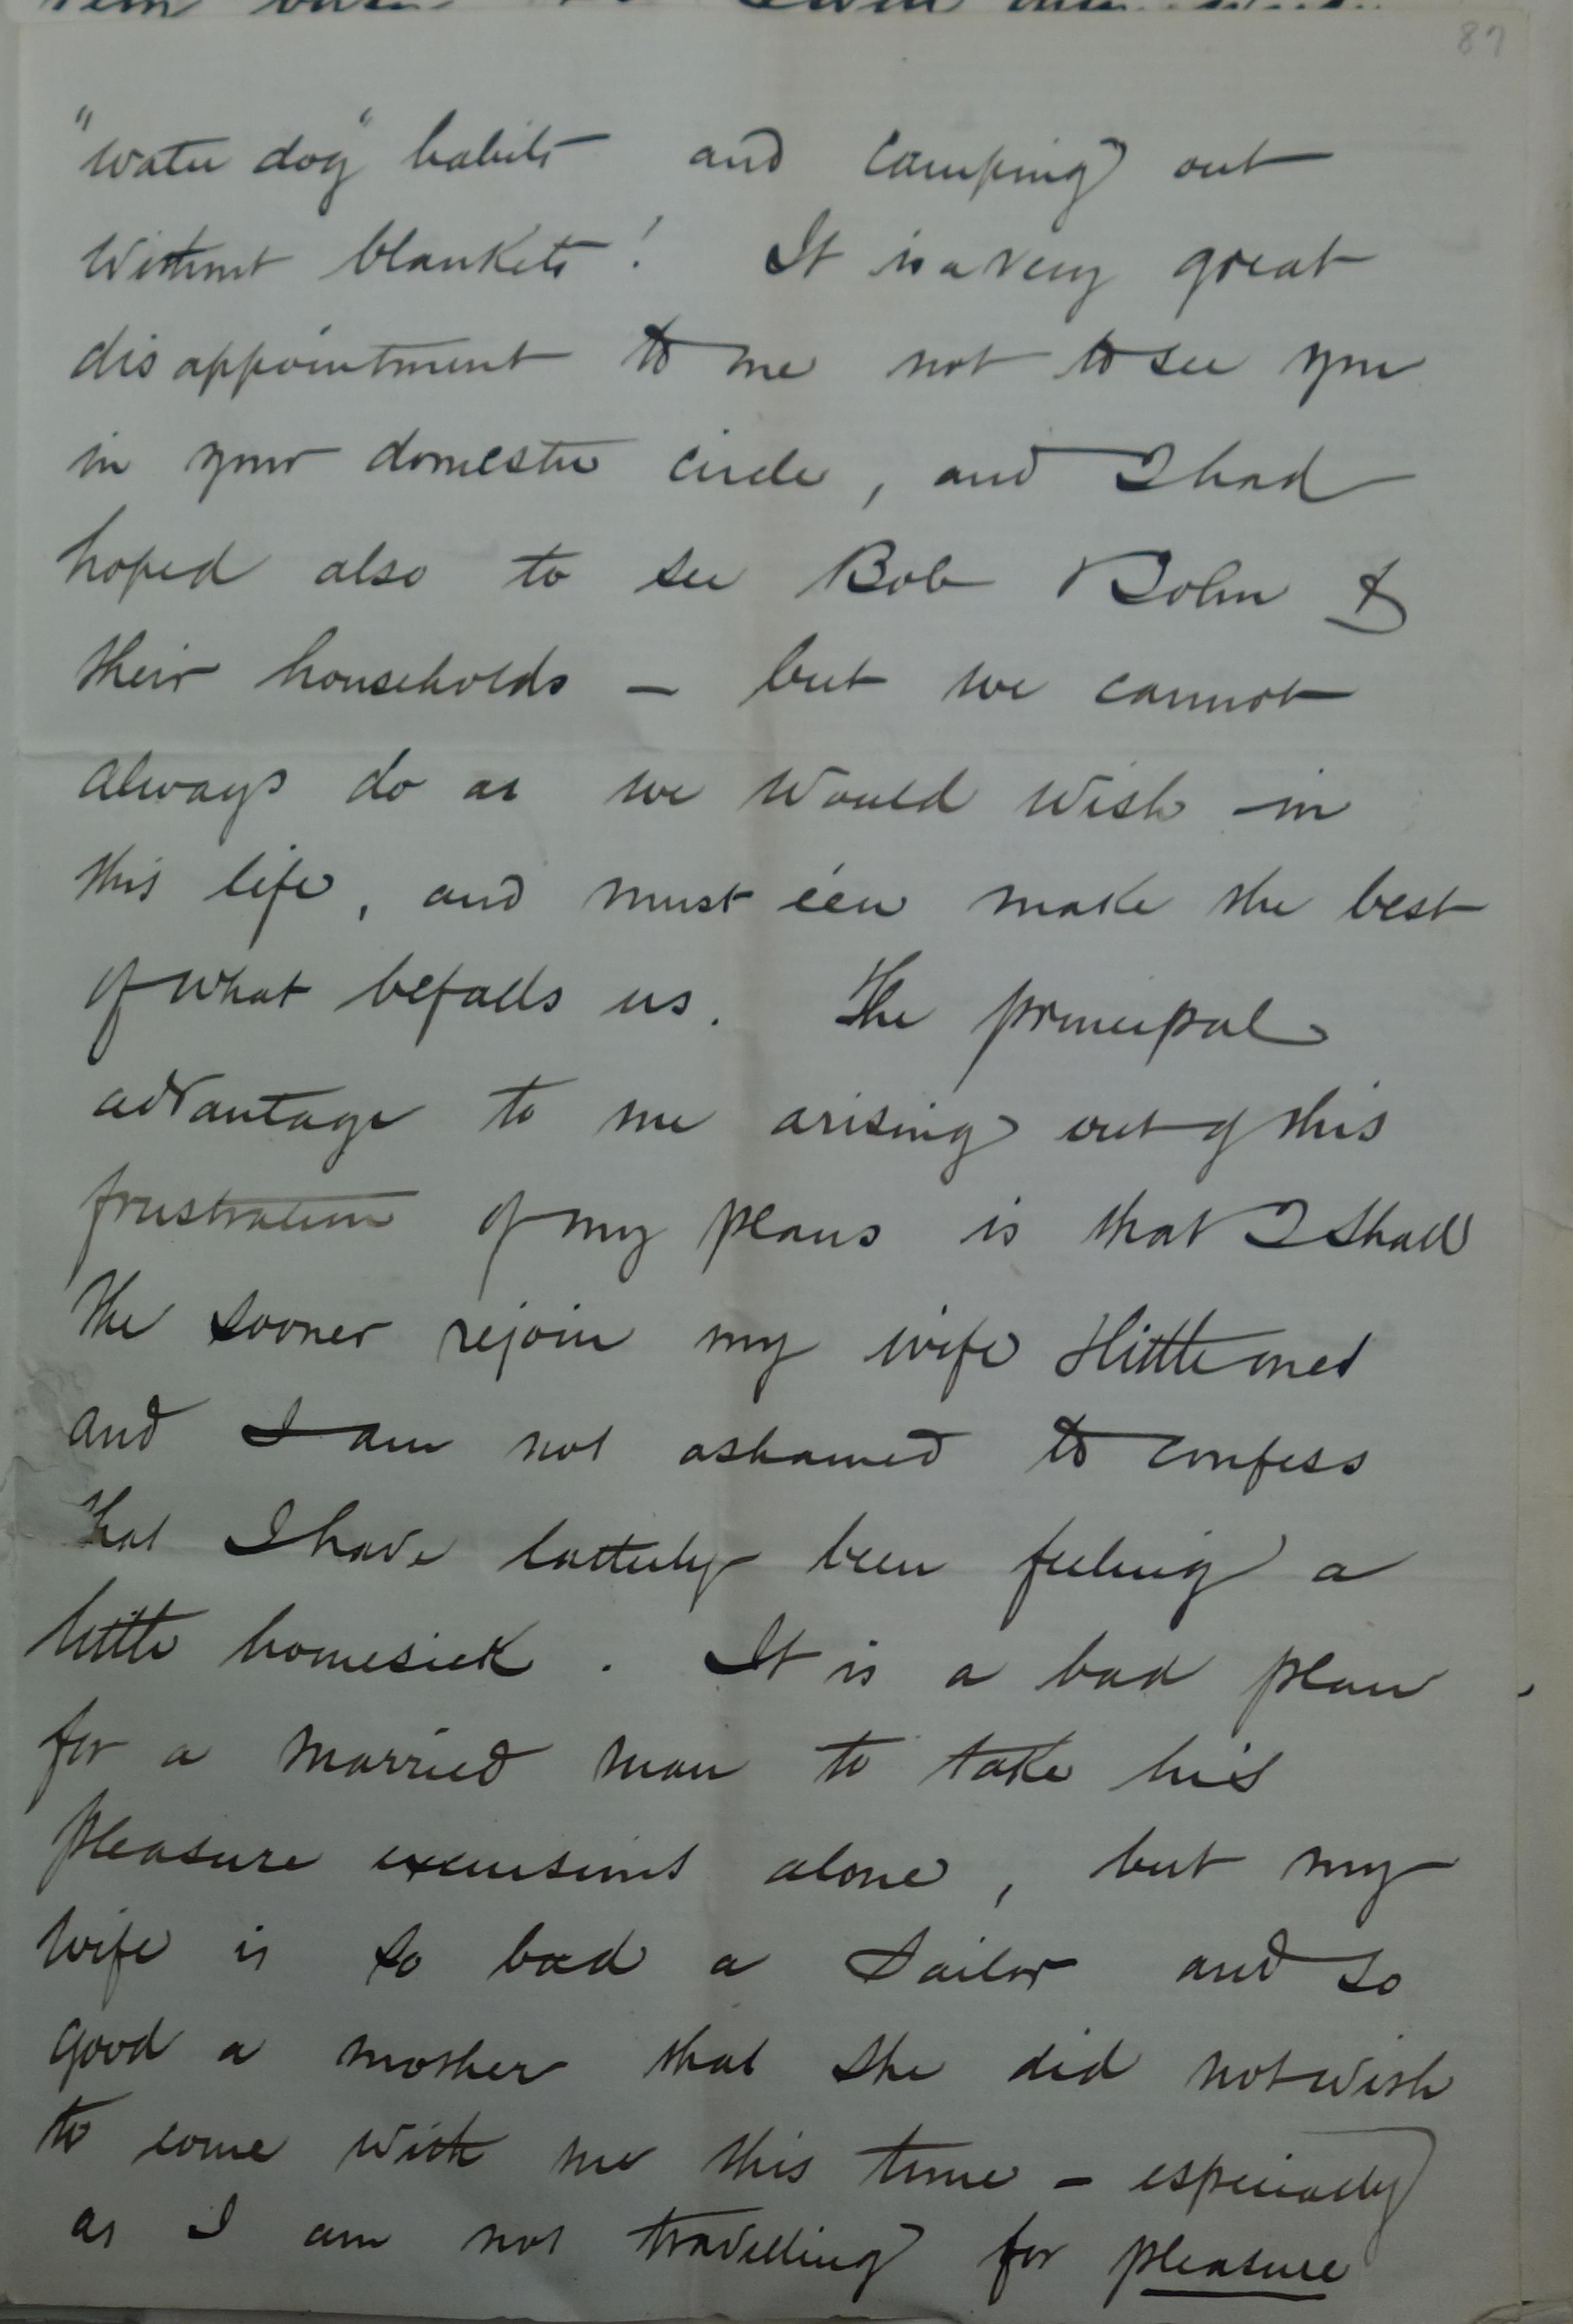 87
"water dog" habits and camping out
without blankets! It is a very great
disappointment to me not to see you
in your domestic circle, and I had
hoped also to see Bob Bolm &
their households — but we cannot
always do as we would wish in
this life, and must e'en make the best
of what befalls us. The principal
advantage to me arising out of this
frustration of my plans is that I shall
the sooner rejoin my wife & little ones
and I am not ashamed to confess
that I have latterly been feeling a
little homesick. It is a bad plan
for a married man to take his
pleasure excursions alone, but my
wife is so bad a sailor and so
good a mother that she did not wish
to come with me this time — especially
as I am not travelling for pleasure